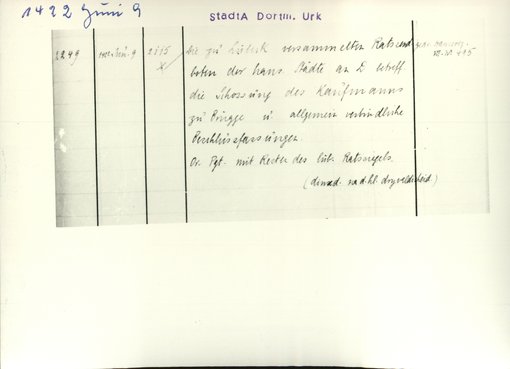 1422 Juni 9
StadtA Dortm. Urk
2249 1422 Juni 9 2115 Die zu Lübeck versammelten Ratssend
boten der hans. Städte an D betreff.
die Schossung des Kaufmanns
zu Brügge u allgemein verbindliche
Beschlussfassungen.
Or. Pgt. mit Rester des lüb. Ratssiegels.
(dinxed. na d. hl. dryvoldicheid.)